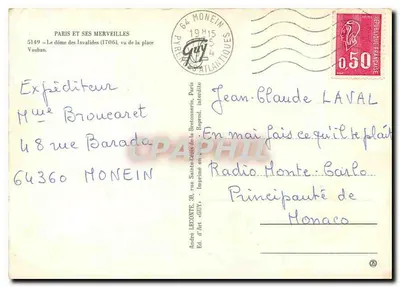 PARIS ET SES MERVEILLES
5149 - Le dôme des Invalides (1706), vu de la place
Vauban.
64 MONEIN
PYRENEES ATLANTIQUES
Guy
0,50
Expéditeur
Mme Broucaret
48 rue Barada
64360 MONEIN
André LECONTE, 38, rue Sainte-Croix-de-la-Bretonnerie, Paris
Ed. d'Art «GUY» - Imprimé en
Reprod. interdite
Jean-Claude LAVAL
En mai fais ce qu'il te plaît
Radio Monte-Carlo
Principauté de
Monaco